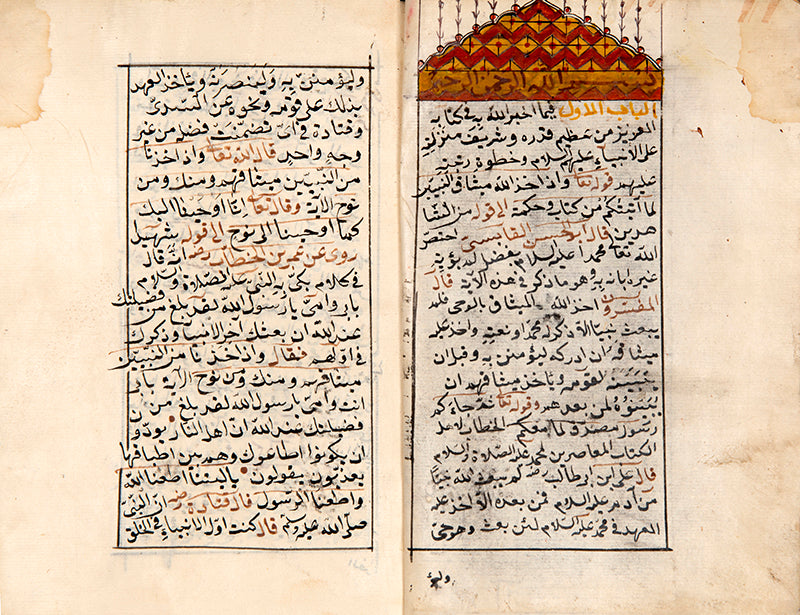 بسم الله الرحمن الرحيم
الباب الاول فيما اخبر الله به في كتابه
العزيز من عظيم قدره وشريف منزلته
على الانبياء عليهم السلام وحظوة رتبته
عليهم قوله تعا واذ اخذ الله ميثاق النبيين
لما آتيتكم من كتاب وحكمة الى قوله من الشا
هدين قال ابو الحسن القابسي اختص
الله تعالى محمدا عليه السلام بفضل لم يؤته
غيره ابانه به وهو ما ذكر في هذه الآية قال
المفسرون اخذ الله الميثاق بالوحي فلم
يبعث نبيا الا ذكر له محمدا ونعته واخذ عليه
ميثاقه ان ادركه ليؤمنن به وقيل ان
يبينه لقومه وياخذ ميثاقهم ان
يبينوه لمن بعدهم وقوله تعا ثم جاءكم
رسول مصدق لما معكم الخطاب لاهل
الكتاب المعاصرين لمحمد عليه الصلاة والسلام
قال علي ابن ابي طالب رضه لم يبعث الله نبيا
من آدم عليه السلام فمن بعده الا اخذ عليه
العهد في محمد عليه السلام لئن بعث وهو حي
وليؤ
وليؤمنن به ولينصرنه وياخذ العهد
بذلك على قومه ونحوه عن السدي
وقتادة في آي تضمنت فضله من غير
وجه واحد قال الله تعا واذ اخذنا
من النبيين ميثاقهم ومنك ومن
نوح الآية وقال تعا انا اوحينا اليك
كما اوحينا الى نوح الى قوله شهيدا
روى عن عمر بن الخطاب رضه انه قال
في كلام بكى به النبي عليه الصلاة والسلام
بابي وامي يا رسول الله لقد بلغ من فضيلتك
عند الله ان بعثك آخر الانبيا وذكرك
في اولهم فقال واذ اخذنا من النبيين
ميثاقهم ومنك ومن نوح الآية بابي
انت وامي يا رسول الله لقد بلغ من
فضيلتك عند الله ان اهل النار يودو
ان يكونوا اطاعوك وهم بين اطباقها
يعذبون يقولون يا ليتنا اطعنا الله
واطعنا الرسول قال قتادة رضه ان النبي
صلى الله عليه وسلم قال كنت اول الانبياء في الخلق